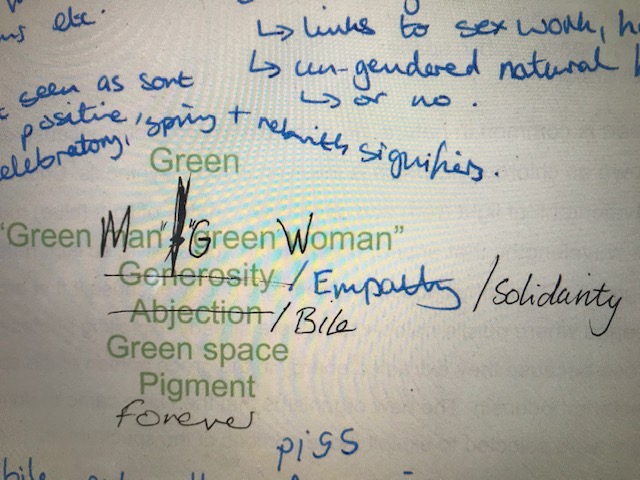 etc.
↳ links to sex work,
↳ un-gendered natural
↳ or no.
seen as sort
positive, spring + rebirth signifiers.
celebratory,
Green
"Green Man" / "Green Woman"
Generosity / Empathy / Solidarity
Abjection / Bile
Green space
Pigment
forever
piss
bile